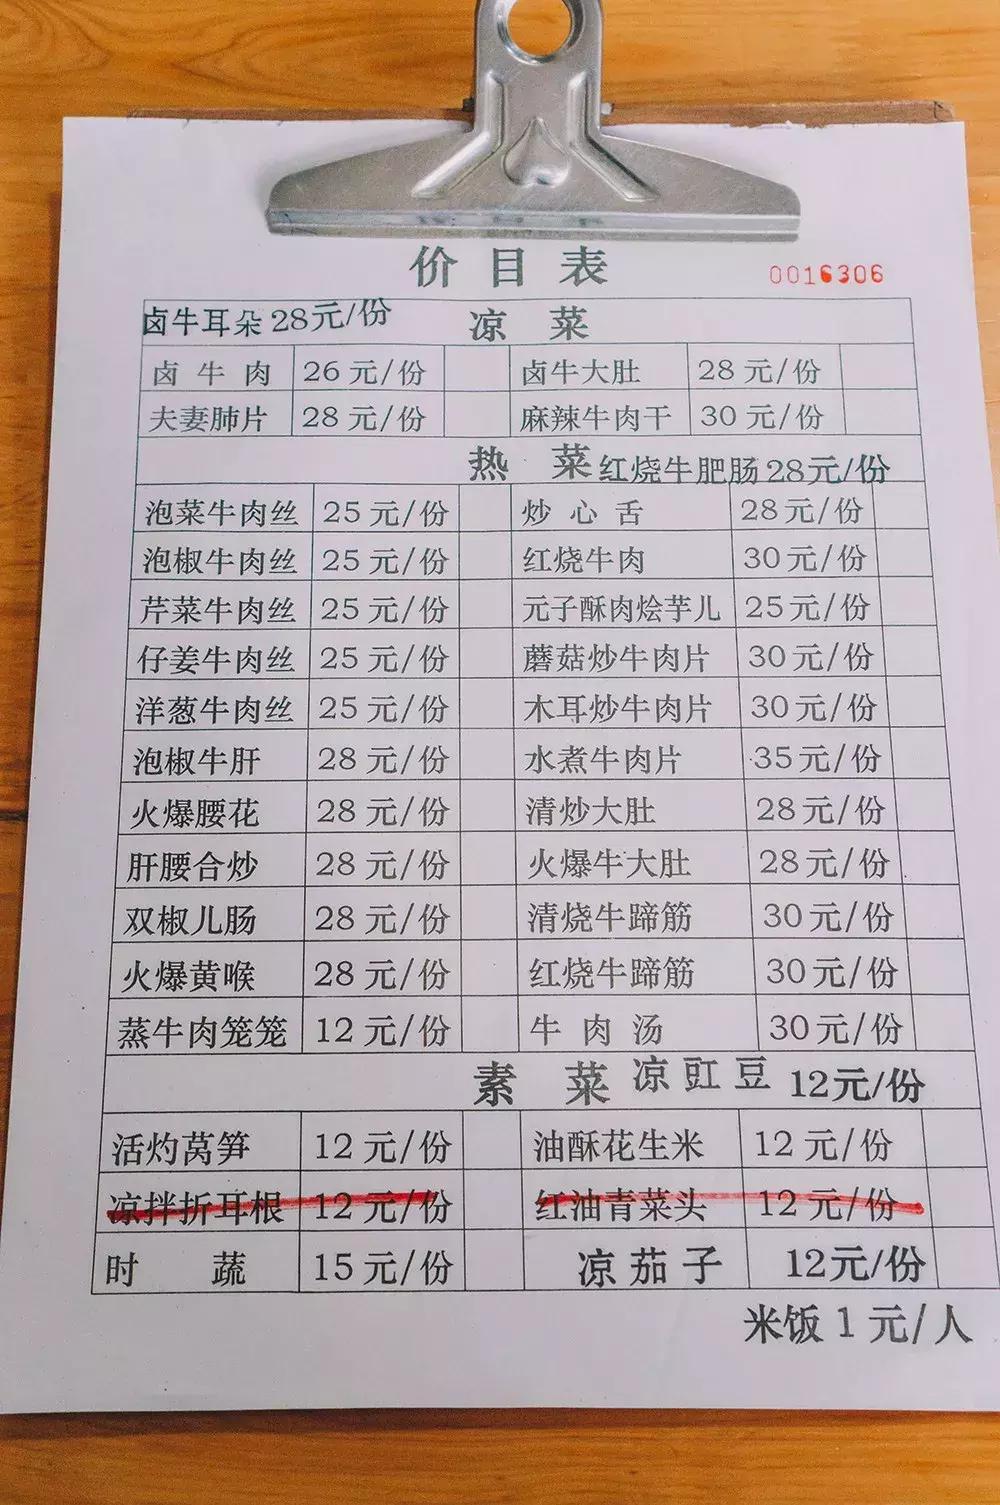 价目表 0016306
卤牛耳朵 28元/份 凉菜
卤牛肉 26元/份 卤牛大肚 28元/份
夫妻肺片 28元/份 麻辣牛肉干 30元/份
热菜 红烧牛肥肠 28元/份
泡菜牛肉丝 25元/份 炒心舌 28元/份
泡椒牛肉丝 25元/份 红烧牛肉 30元/份
芹菜牛肉丝 25元/份 元子酥肉烩芋儿 25元/份
仔姜牛肉丝 25元/份 蘑菇炒牛肉片 30元/份
洋葱牛肉丝 25元/份 木耳炒牛肉片 30元/份
泡椒牛肝 28元/份 水煮牛肉片 35元/份
火爆腰花 28元/份 清炒大肚 28元/份
肝腰合炒 28元/份 火爆牛大肚 28元/份
双椒儿肠 28元/份 清烧牛蹄筋 30元/份
火爆黄喉 28元/份 红烧牛蹄筋 30元/份
蒸牛肉笼笼 12元/份 牛肉汤 30元/份
素菜 凉豇豆 12元/份
活灼莴笋 12元/份 油酥花生米 12元/份
凉拌折耳根 12元/份 红油青菜头 12元/份
时蔬 15元/份 凉茄子 12元/份
米饭1元/人